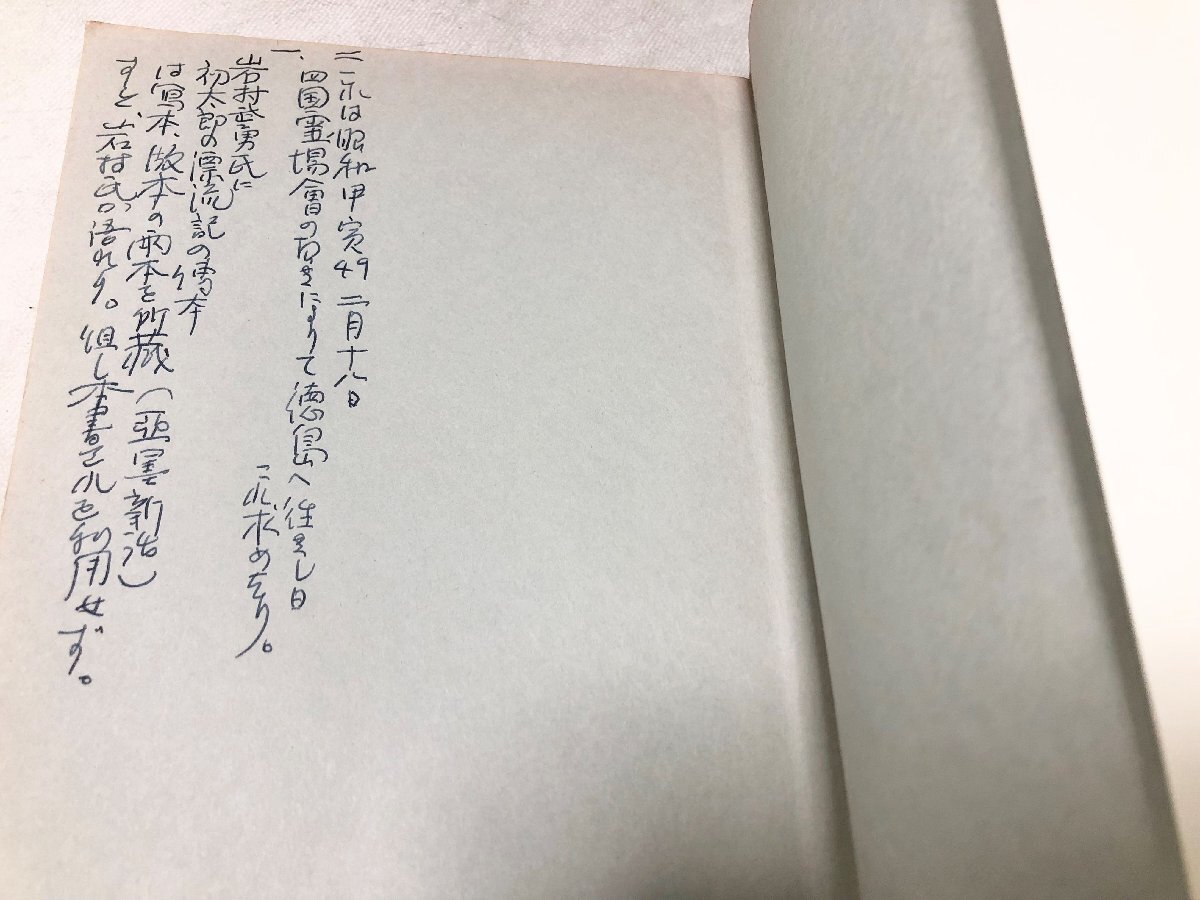 これは昭和甲寅49 二月十八日
一、四国霊場會の招きによりて徳島へ往きし日
岩村武勇氏に
これ求めたり。
初太郎の漂流記の傳本
は寫本、版本の両本を所蔵(亜墨新話)
すと、岩村氏の語れり。但し本書これを利用せず。